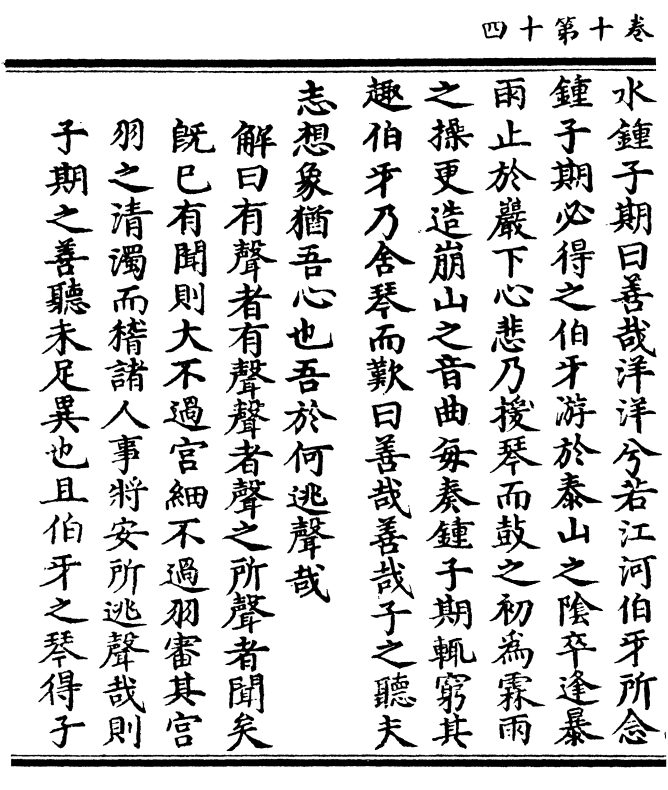 卷十第十四
水鍾子期曰善哉洋洋兮若江河伯牙所念
鍾子期必得之伯牙游於泰山之陰卒逢暴
雨止於巖下心悲乃援琴而鼓之初為霖雨
之操更造崩山之音曲每奏鍾子期輒窮其
趣伯牙乃舍琴而歎曰善哉善哉子之聽夫
志想象猶吾心也吾於何逃聲哉
解曰有聲者有聲聲者聲之所聲者聞矣
既已有聞則大不過宮細不過羽審其宮
羽之清濁而稽諸人事將安所逃聲哉則
子期之善聽未足異也且伯牙之琴得子